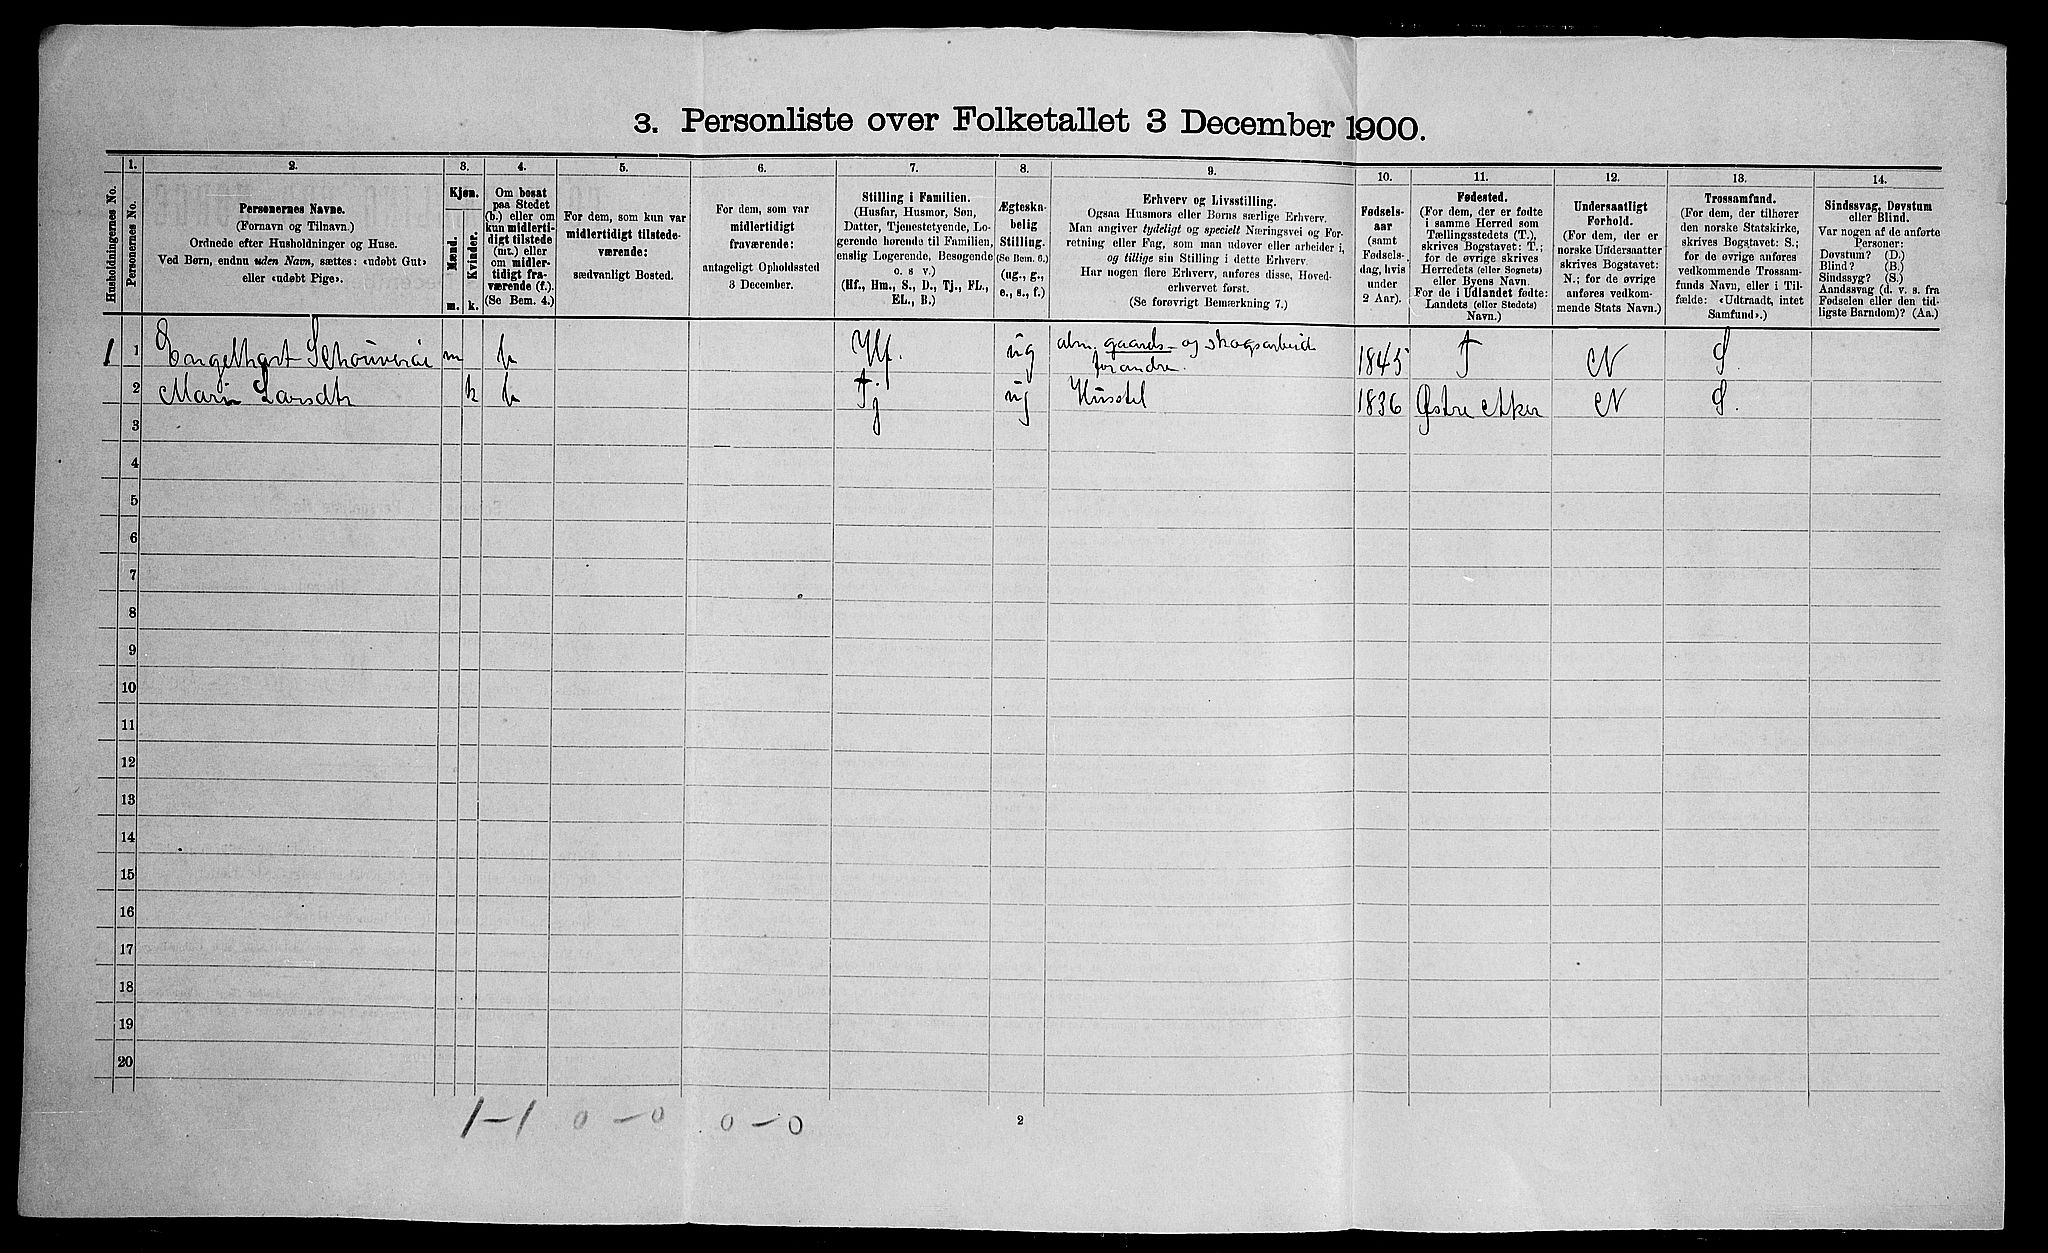 3. Personliste over Folketallet 3 December 1900.
Husholdningernes No.
1.
Personernes No.
2.
Personernes Navne.
(Fornavn og Tilnavn.)
Ordnede efter Husholdninger og Huse.
Ved Børn, endnu uden Navn, sættes: «udøbt Gut»
eller «udøbt Pige».
3.
Kjøn.
Mænd.
Kvinder.
m.
k.
4.
Om bosat
paa Stedet
(b.) eller om
kun midlerti-
digt tilstede
(mt.) eller
om midler-
tidigt fra-
værende (f.).
(Se Bem. 4.)
5.
For dem, som kun var
midlertidigt tilstede-
værende:
sædvanligt Bosted.
6.
For dem, som var
midlertidigt
fraværende:
antageligt Opholdssted
3 December.
7.
Stilling i Familien.
(Husfar, Husmor, Søn,
Datter, Tjenestetyende, Lo-
gerende hørende til Familien,
enslig Logerende, Besøgende
o. s v.)
(Hf., Hm., S., D., Tj., FL.,
EL., B.)
8.
Ægteska-
belig
Stilling.
(Se Bem. 6.)
(ug., g.,
e., s., f.)
9.
Erhverv og Livsstilling.
Ogsaa Husmors eller Børns særlige Erhverv.
Man angiver tydeligt og specielt Næringsvei og For-
retning eller Fag, som man udøver eller arbeider i,
og tillige sin Stilling i dette Erhverv.
Har nogen flere Erhverv, anføres disse, Hoved-
erhvervet først.
(Se forøvrigt Bemærkning 7.)
10.
Fødsels-
aar
(samt
Fødsels-
dag, hvis
under
2 Aar).
11.
Fødested.
(For dem, der er fødte
i samme Herred som
Tællingsstedets (T.),
skrives Bogstavet: T.;
for de øvrige skrives
Herredets (eller Sognets)
eller Byens Navn.
For de i Udlandet fødte:
Landets (eller Stedets)
Navn.)
12.
Undersaatligt
Forhold.
(For dem, der er
norske Undersaatter
skrives Bogstavet:
N.; for de øvrige
anføres vedkom-
mende Stats Navn.)
13.
Trossamfund.
(For dem, der tilhører
den norske Statskirke,
skrives Bogstavet: S.;
for de øvrige anføres
vedkommende Trossam-
funds Navn, eller i Til-
fælde: «Udtraadt, intet
Samfund».)
14.
Sindssvag, Døvstum
eller Blind.
Var nogen af de anførte
Personer:
Døvstum? (D.)
Blind? (B.)
Sindssyg? (S.)
Aandssvag (d. v. s. fra
Fødselen eller den tid-
ligste Barndom)? (Aa.)
1 1 Engelhart m b Hf. ug alm. gaards- og skogsarbeide
for andre. 1845 T N S.
2 Marie Larsdtr k b Tj ug Husstel 1836 Østre Aker N S.
3
4
5
6
7
8
9
10
11
12
13
14
15
16
17
18
19
20
1-1 0-0 0-0
2